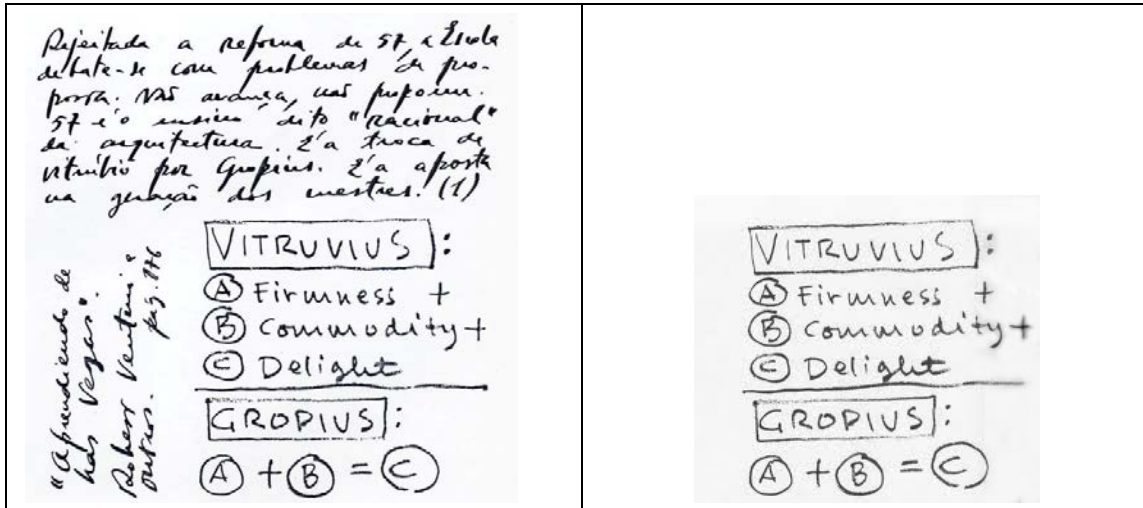 Rejeitada a reforma de 57, a Escola
debate-se com problemas de pro-
posta. Não avança, nas propõem.
57 é o ensino dito "racional"
da arquitectura. É a troca de
vitrúbio por Gropius. É a aposta
na geração dos mestres. (1)
"Aprendiendo de
las Vegas".
Robert Venturi e
outros. pág. 176
VITRUVIUS:
A Firmness +
B Commodity +
C Delight
GROPIUS:
A + B = C
VITRUVIUS:
A Firmness +
B Commodity +
C Delight
GROPIUS:
A + B = C